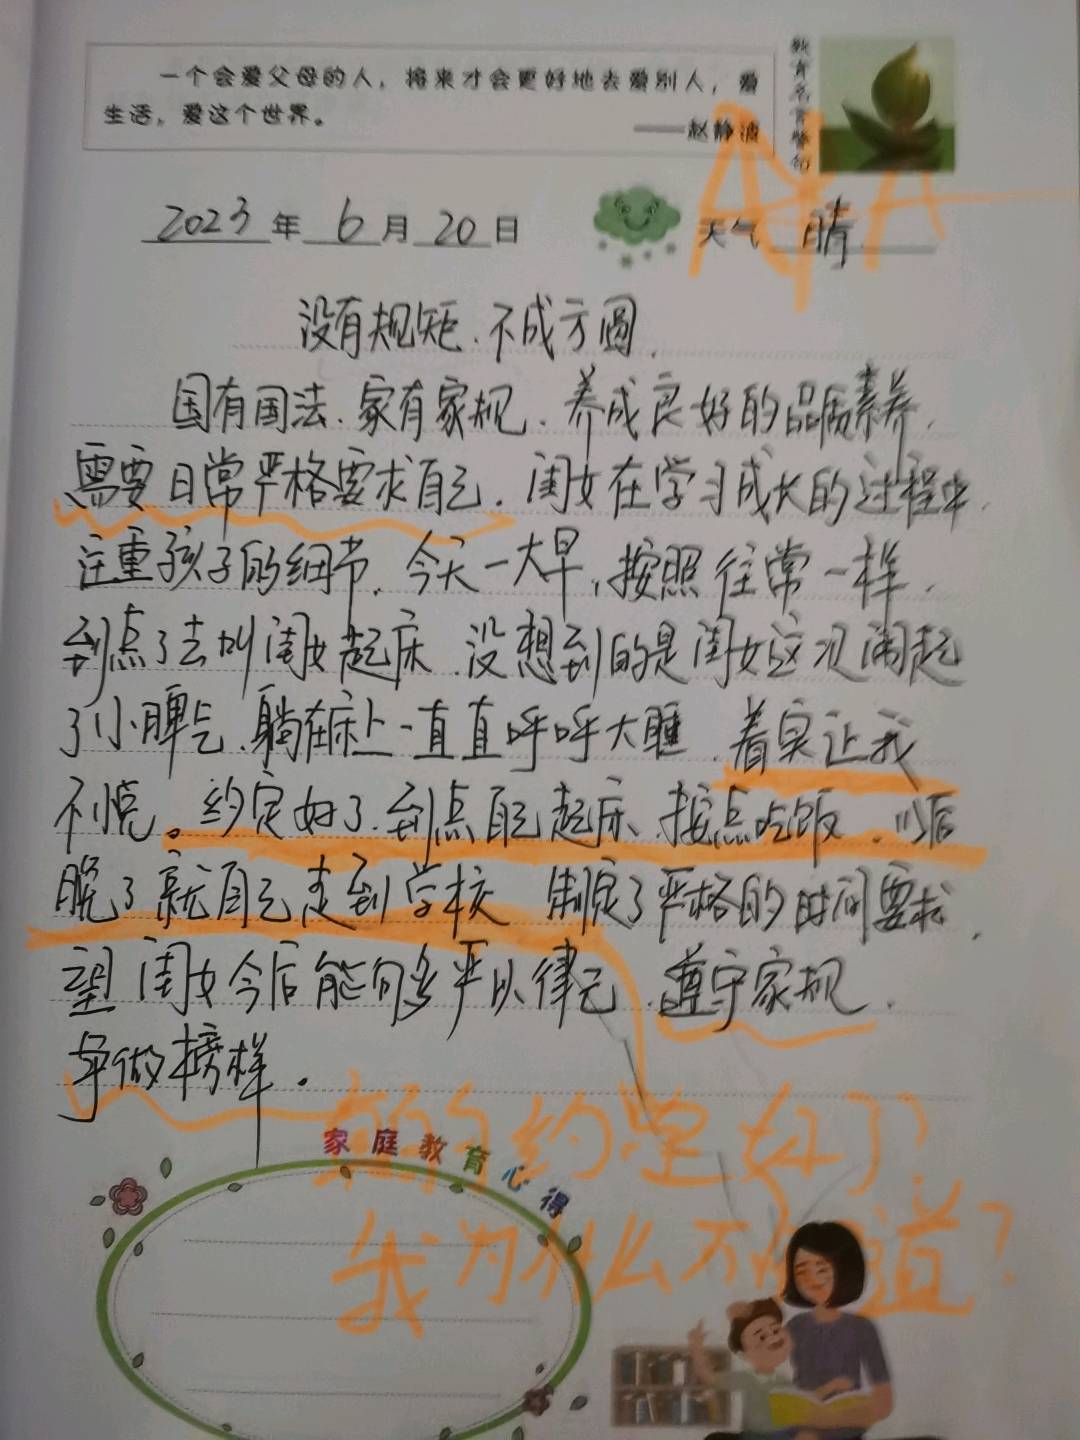 一个会爱父母的人，将来才会更好地去爱别人，爱
生活，爱这个世界。
——赵静波
教育名言警句
2023年6月20日 天气 晴
没有规矩、不成方圆、
国有国法、家有家规、养成良好的品质素养、
需要日常严格要求自己、闺女在学习成长的过程中、
注重孩子的细节、今天一大早、按照往常一样、
到点了去叫闺女起床、没想到的是闺女这次闹起
了小脾气、躺在床上一直直呼呼大睡、着实让我
不悦。约定好了、到点自己起床、按点吃饭、以后
晚了就自己走到学校 制定了严格的时间要求、
望闺女今后能够多严以律己、遵守家规、
争做榜样。
约定好了？
家庭教育心得
我为什么不知道？